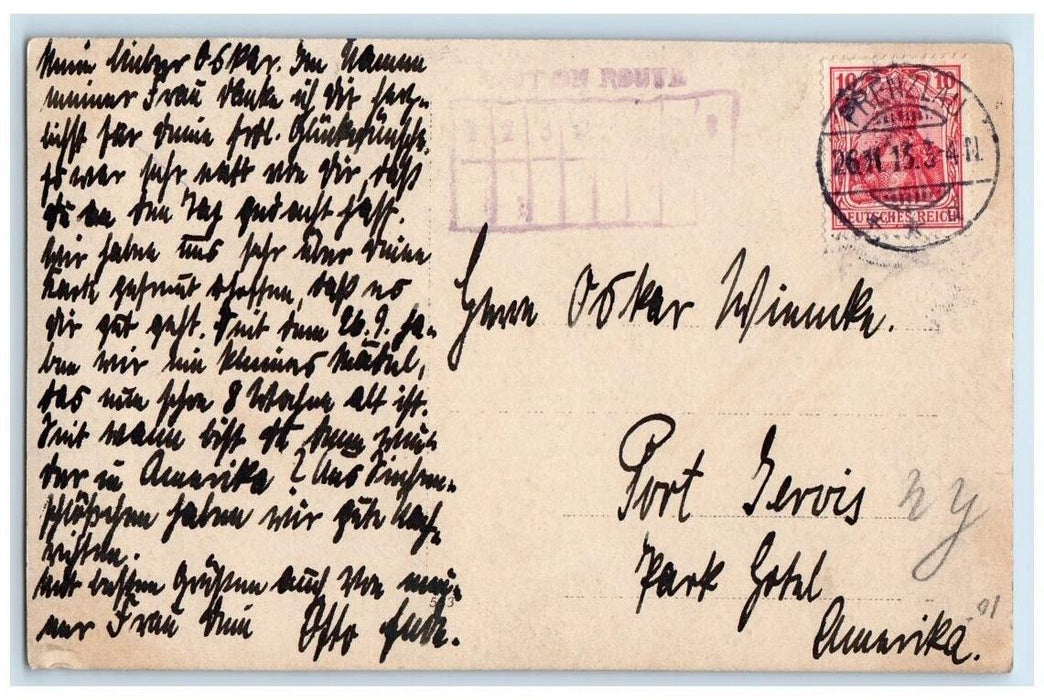 Mein lieber Oskar. Im Namen
meiner Frau danke ich Dir herz-
lichst für Deine frdl. Glückwünsche.
Es war sehr nett von Dir, daß
Du an den Tag gedacht hast.
Wir haben uns sehr über Deine
Karte gefreut u. hoffen, daß es
Dir gut geht. Seit dem 26.9. ha-
ben wir ein kleines Mädel,
das nun schon 8 Wochen alt ist.
Seit wann bist Du denn wie-
der in Amerika? Aus
haben wir gute Nach-
richten.
Mit besten Grüßen auch von mei-
ner Frau Dein Otto
ON ROUTE
1 2 3
10 10
PRENZLAU
26.11.15.3-4 N.
DEUTSCHES REICH
Herrn Oskar Wiencke.
Port Jervis N Y
Park Hotel
Amerika.